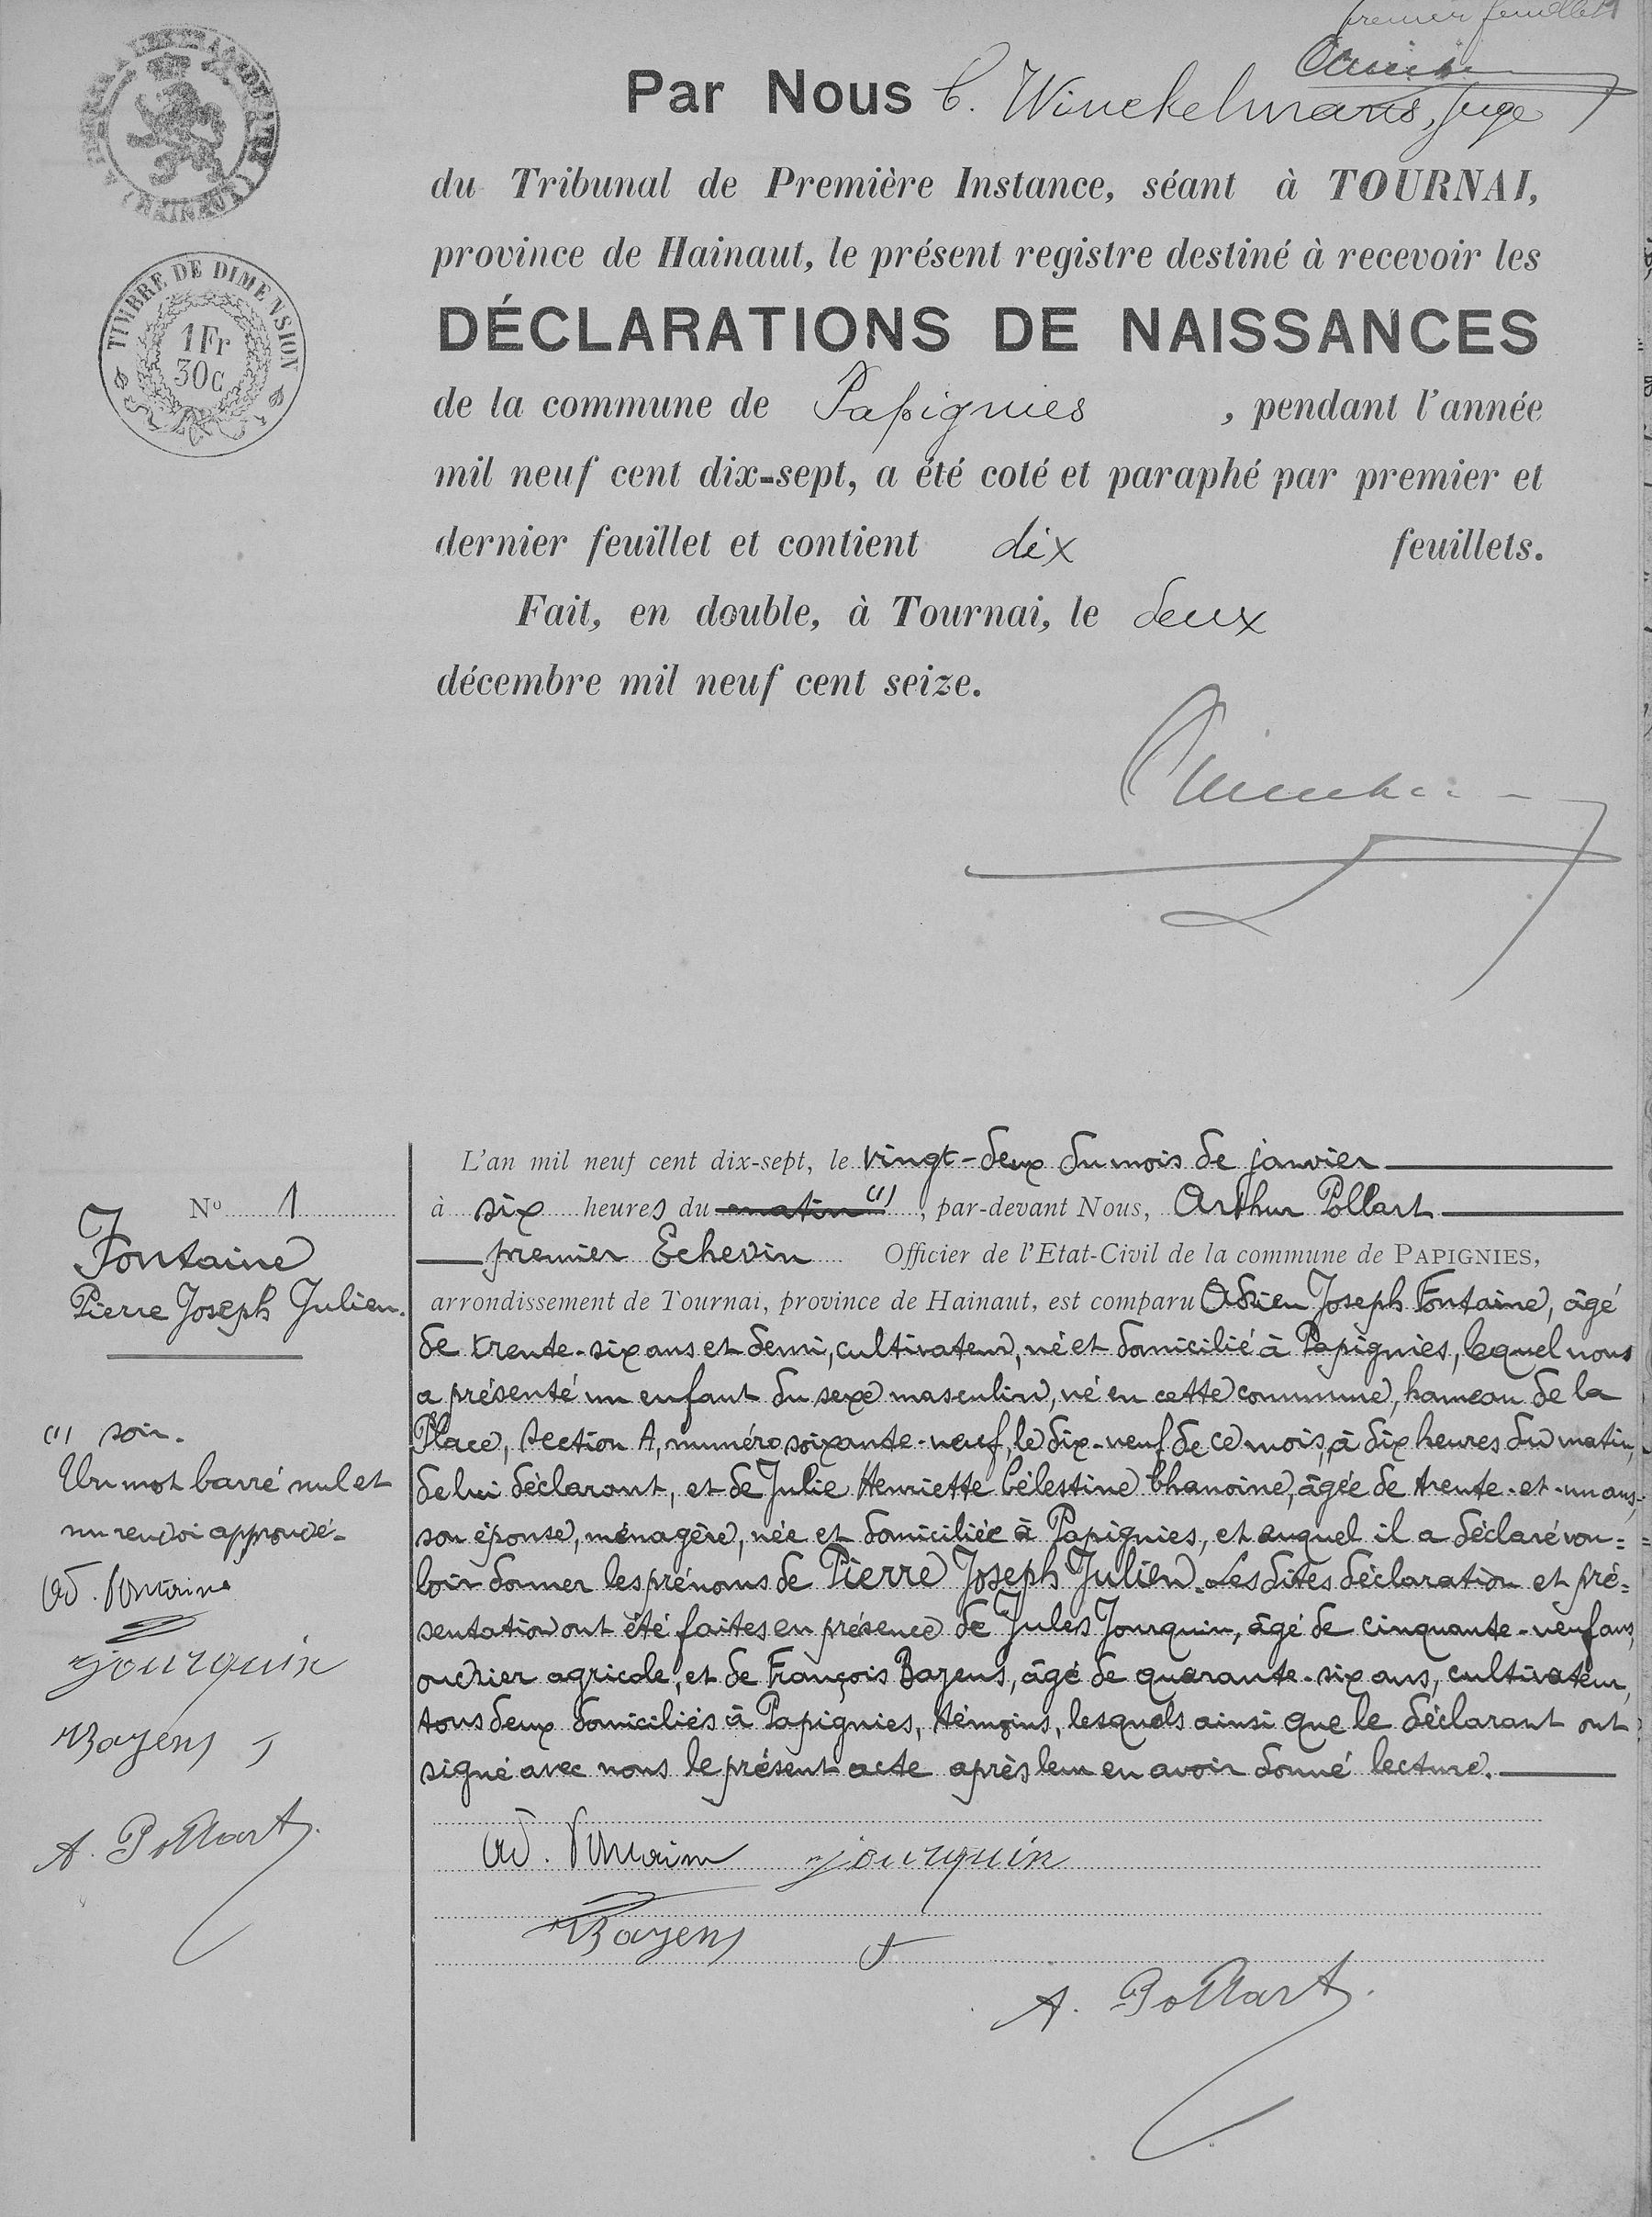 premier feuillet
Par Nous C. Winckelmans, Juge
du Tribunal de Première Instance, séant à TOURNAI,
province de Hainaut, le présent registre destiné à recevoir les
DÉCLARATIONS DE NAISSANCES
de la commune de Papignies, pendant l'année
mil neuf cent dix-sept, a été coté et paraphé par premier et
dernier feuillet et contient dix feuillets.
Fait, en double, à Tournai, le deux
décembre mil neuf cent seize.
TIMBRE DE DIMENSION
1 Fr
30c
Nº 1
Fontaine
Pierre Joseph Julien.
(1) soir.
Un mot barré nul et
un renvoi approuvé.
Ad. Fontaine
Jourquin
Bayens
A. Pollart
L'an mil neuf cent dix-sept, le vingt-deux du mois de janvier
à six heures du matin (1), par-devant Nous, Arthur Pollart
premier Echevin Officier de l'Etat-Civil de la commune de PAPIGNIES,
arrondissement de Tournai, province de Hainaut, est comparu Adrien Joseph Fontaine, âgé
de trente-six ans et demi, cultivateur, né et domicilié à Papignies, lequel nous
a présenté un enfant du sexe masculin, né en cette commune, hameau de la
Place, section A, numéro soixante-neuf, le dix-neuf de ce mois, à dix heures du matin,
de lui déclarant, et de Julie Henriette Célestine Chanoine, âgée de trente-et-un ans,
son épouse, ménagère, née et domiciliée à Papignies, et auquel il a déclaré vou=
loir donner les prénoms de Pierre Joseph Julien. Les dites déclaration et pré=
sentation ont été faites en présence de Jules Jourquin, âgé de cinquante-neuf ans,
ouvrier agricole, et de François Bayens, âgé de quarante-six ans, cultivateur,
tous deux domiciliés à Papignies, témoins, lesquels ainsi que le déclarant ont
signé avec nous le présent acte après leur en avoir donné lecture.
Ad. Fontaine Jourquin
Bayens
A. Pollart